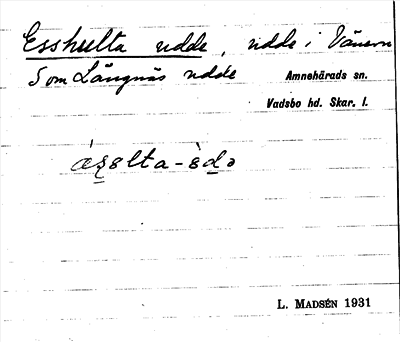 Esshulta udde, udde i Vänern
Som Långnäs udde
Amnehärads sn.
Vadsbo hd. Skar. l.
L. MADSÉN 1931